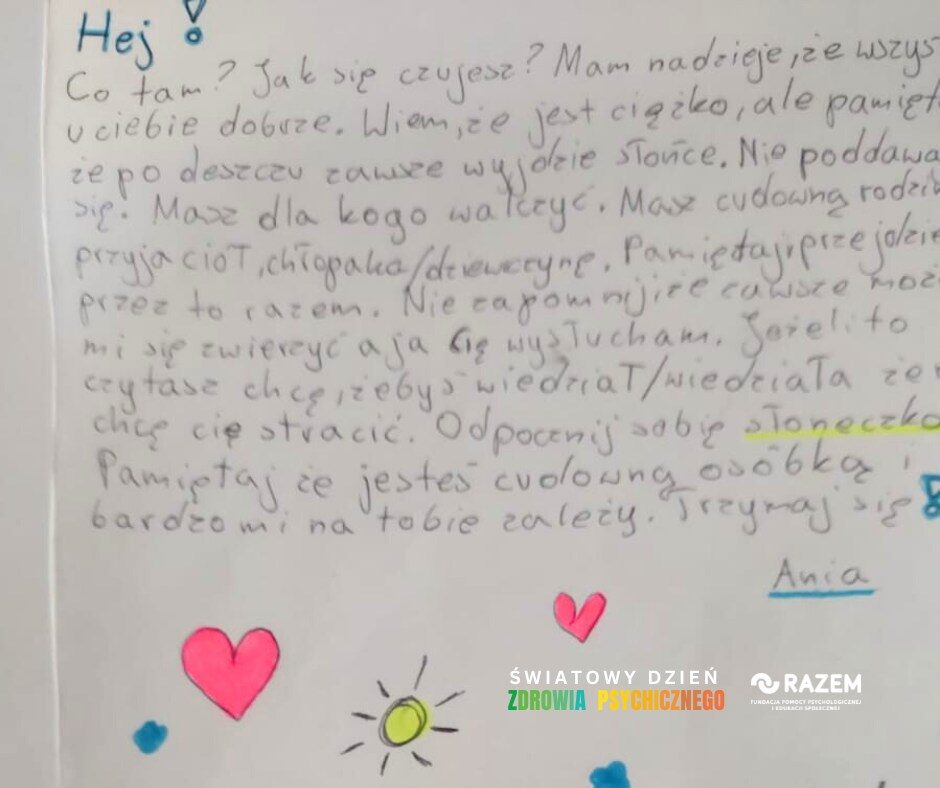 Hej!
Co tam? Jak się czujesz? Mam nadzieje, że wszys
u ciebie dobrze. Wiem, że jest ciężko, ale pamięt
że po deszczu zawsze wyjdzie słońce. Nie poddawa
się! Masz dla kogo walczyć. Masz cudowną rodzin
przyjaciół, chłopaka/dziewczynę. Pamiętaj, przejdzie
przez to razem. Nie zapomnij, że zawsze moż
mi się zwierzyć a ja Cię wysłucham. Jeżeli to
czytasz chcę, żebyś wiedział/wiedziała że
chcę cię stracić. Odpocznij sobię słoneczko
Pamiętaj że jesteś cudowną osóbką i
bardzo mi na tobie zależy. Trzymaj się!
Ania
ŚWIATOWY DZIEŃ
ZDROWIA PSYCHICZNEGO
RAZEM
FUNDACJA POMOCY PSYCHOLOGICZNEJ
I EDUKACJI SPOŁECZNEJ